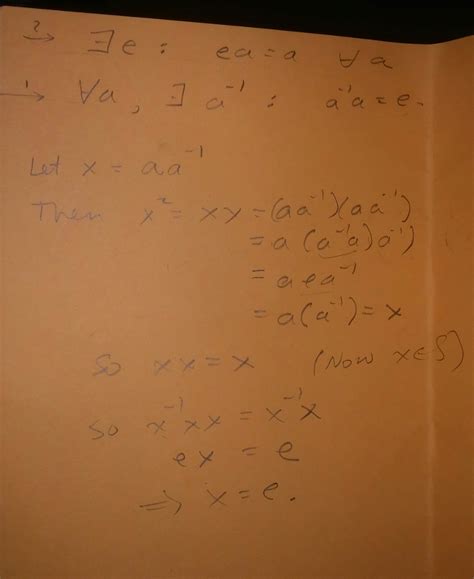 2→ ∃e : ea=a ∀a
1→ ∀a, ∃ a⁻¹ : a⁻¹a=e.
Let x = aa⁻¹
Then x² = xx = (aa⁻¹)(aa⁻¹)
= a(a⁻¹a)a⁻¹)
= aea⁻¹
= a(a⁻¹) = x
So xx = x (Now x∈S)
So x⁻¹xx = x⁻¹x
ex = e
⇒ x = e.